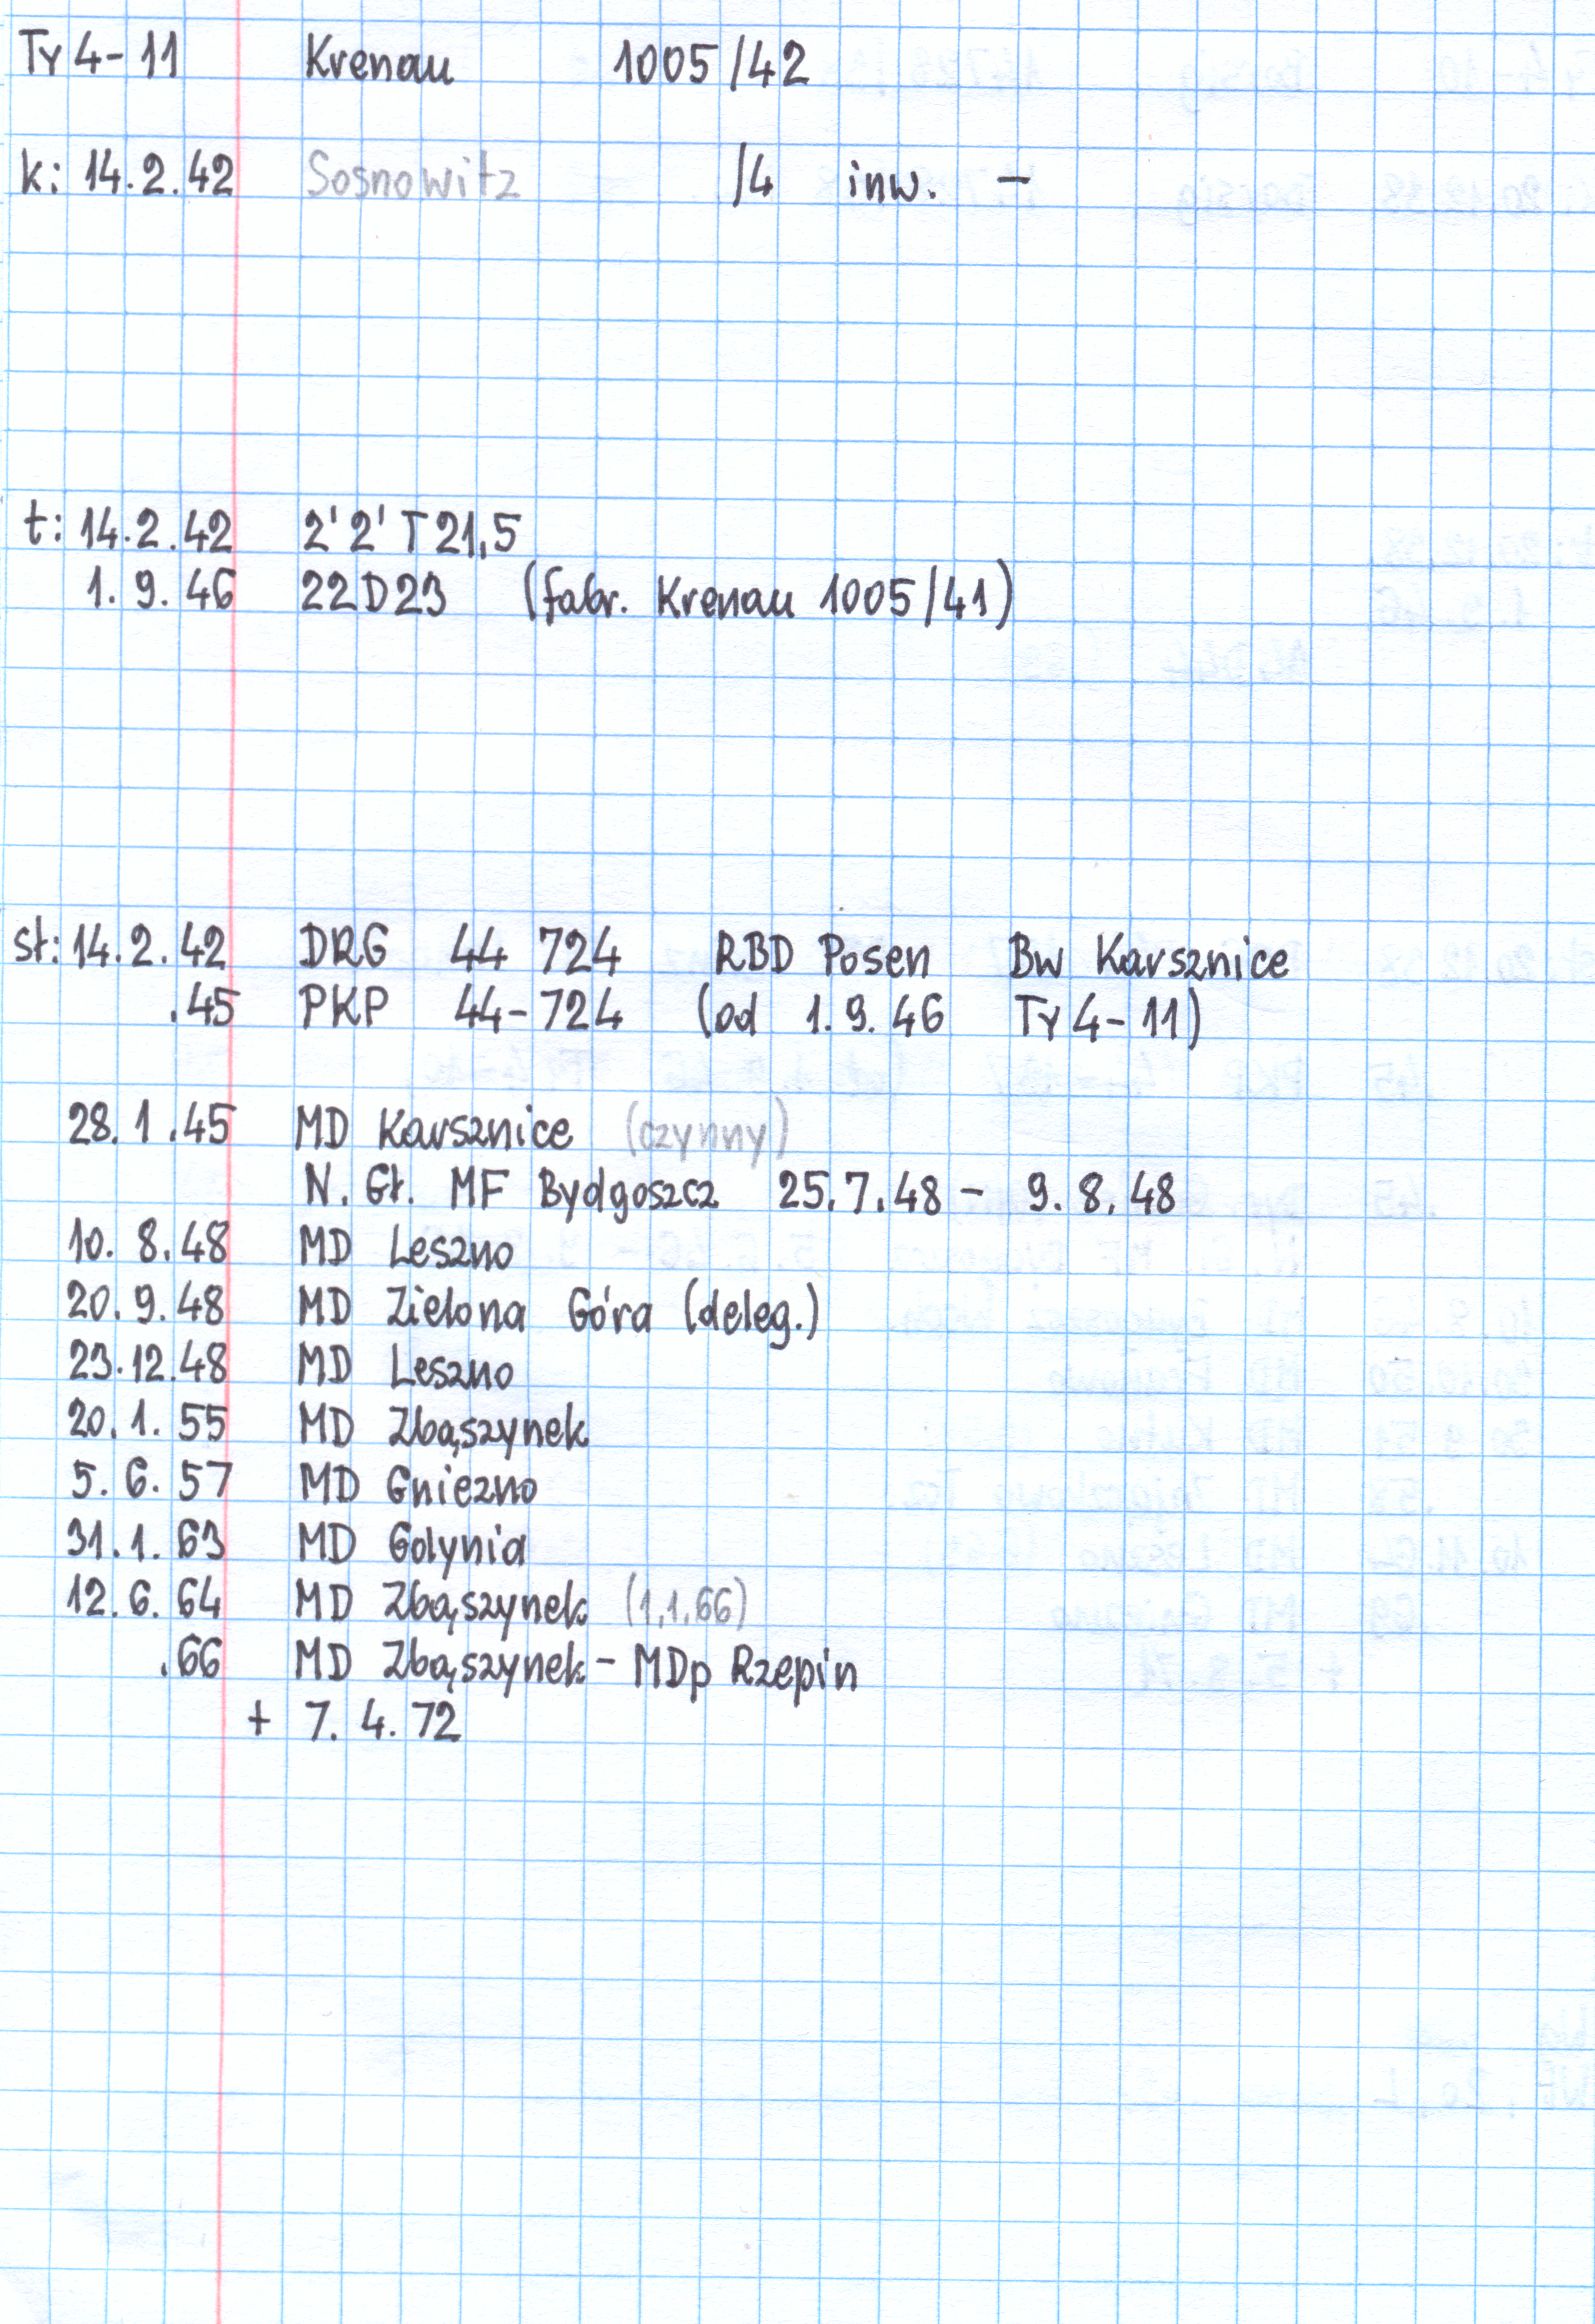 Ty 4-11 Krenau 1005/42
k: 14.2.42 Sosnowitz /4 inw. -
t: 14.2.42 2'2' T 21,5
1.9.46 22D23 (fabr. Krenau 1005/41)
st: 14.2.42 DRG 44 724 RBD Posen Bw Karsznice
.45 PKP 44-724 (od 1.9.46 Ty 4-11)
28.1.45 MD Karsznice (czynny)
N. Gł. MF Bydgoszcz 25.7.48 - 9.8.48
10.8.48 MD Leszno
20.9.48 MD Zielona Góra (deleg.)
23.12.48 MD Leszno
20.1.55 MD Zbąszynek
5.6.57 MD Gniezno
31.1.63 MD Gdynia
12.6.64 MD Zbąszynek (1.1.66)
.66 MD Zbąszynek - MDp Rzepin
+ 7.4.72